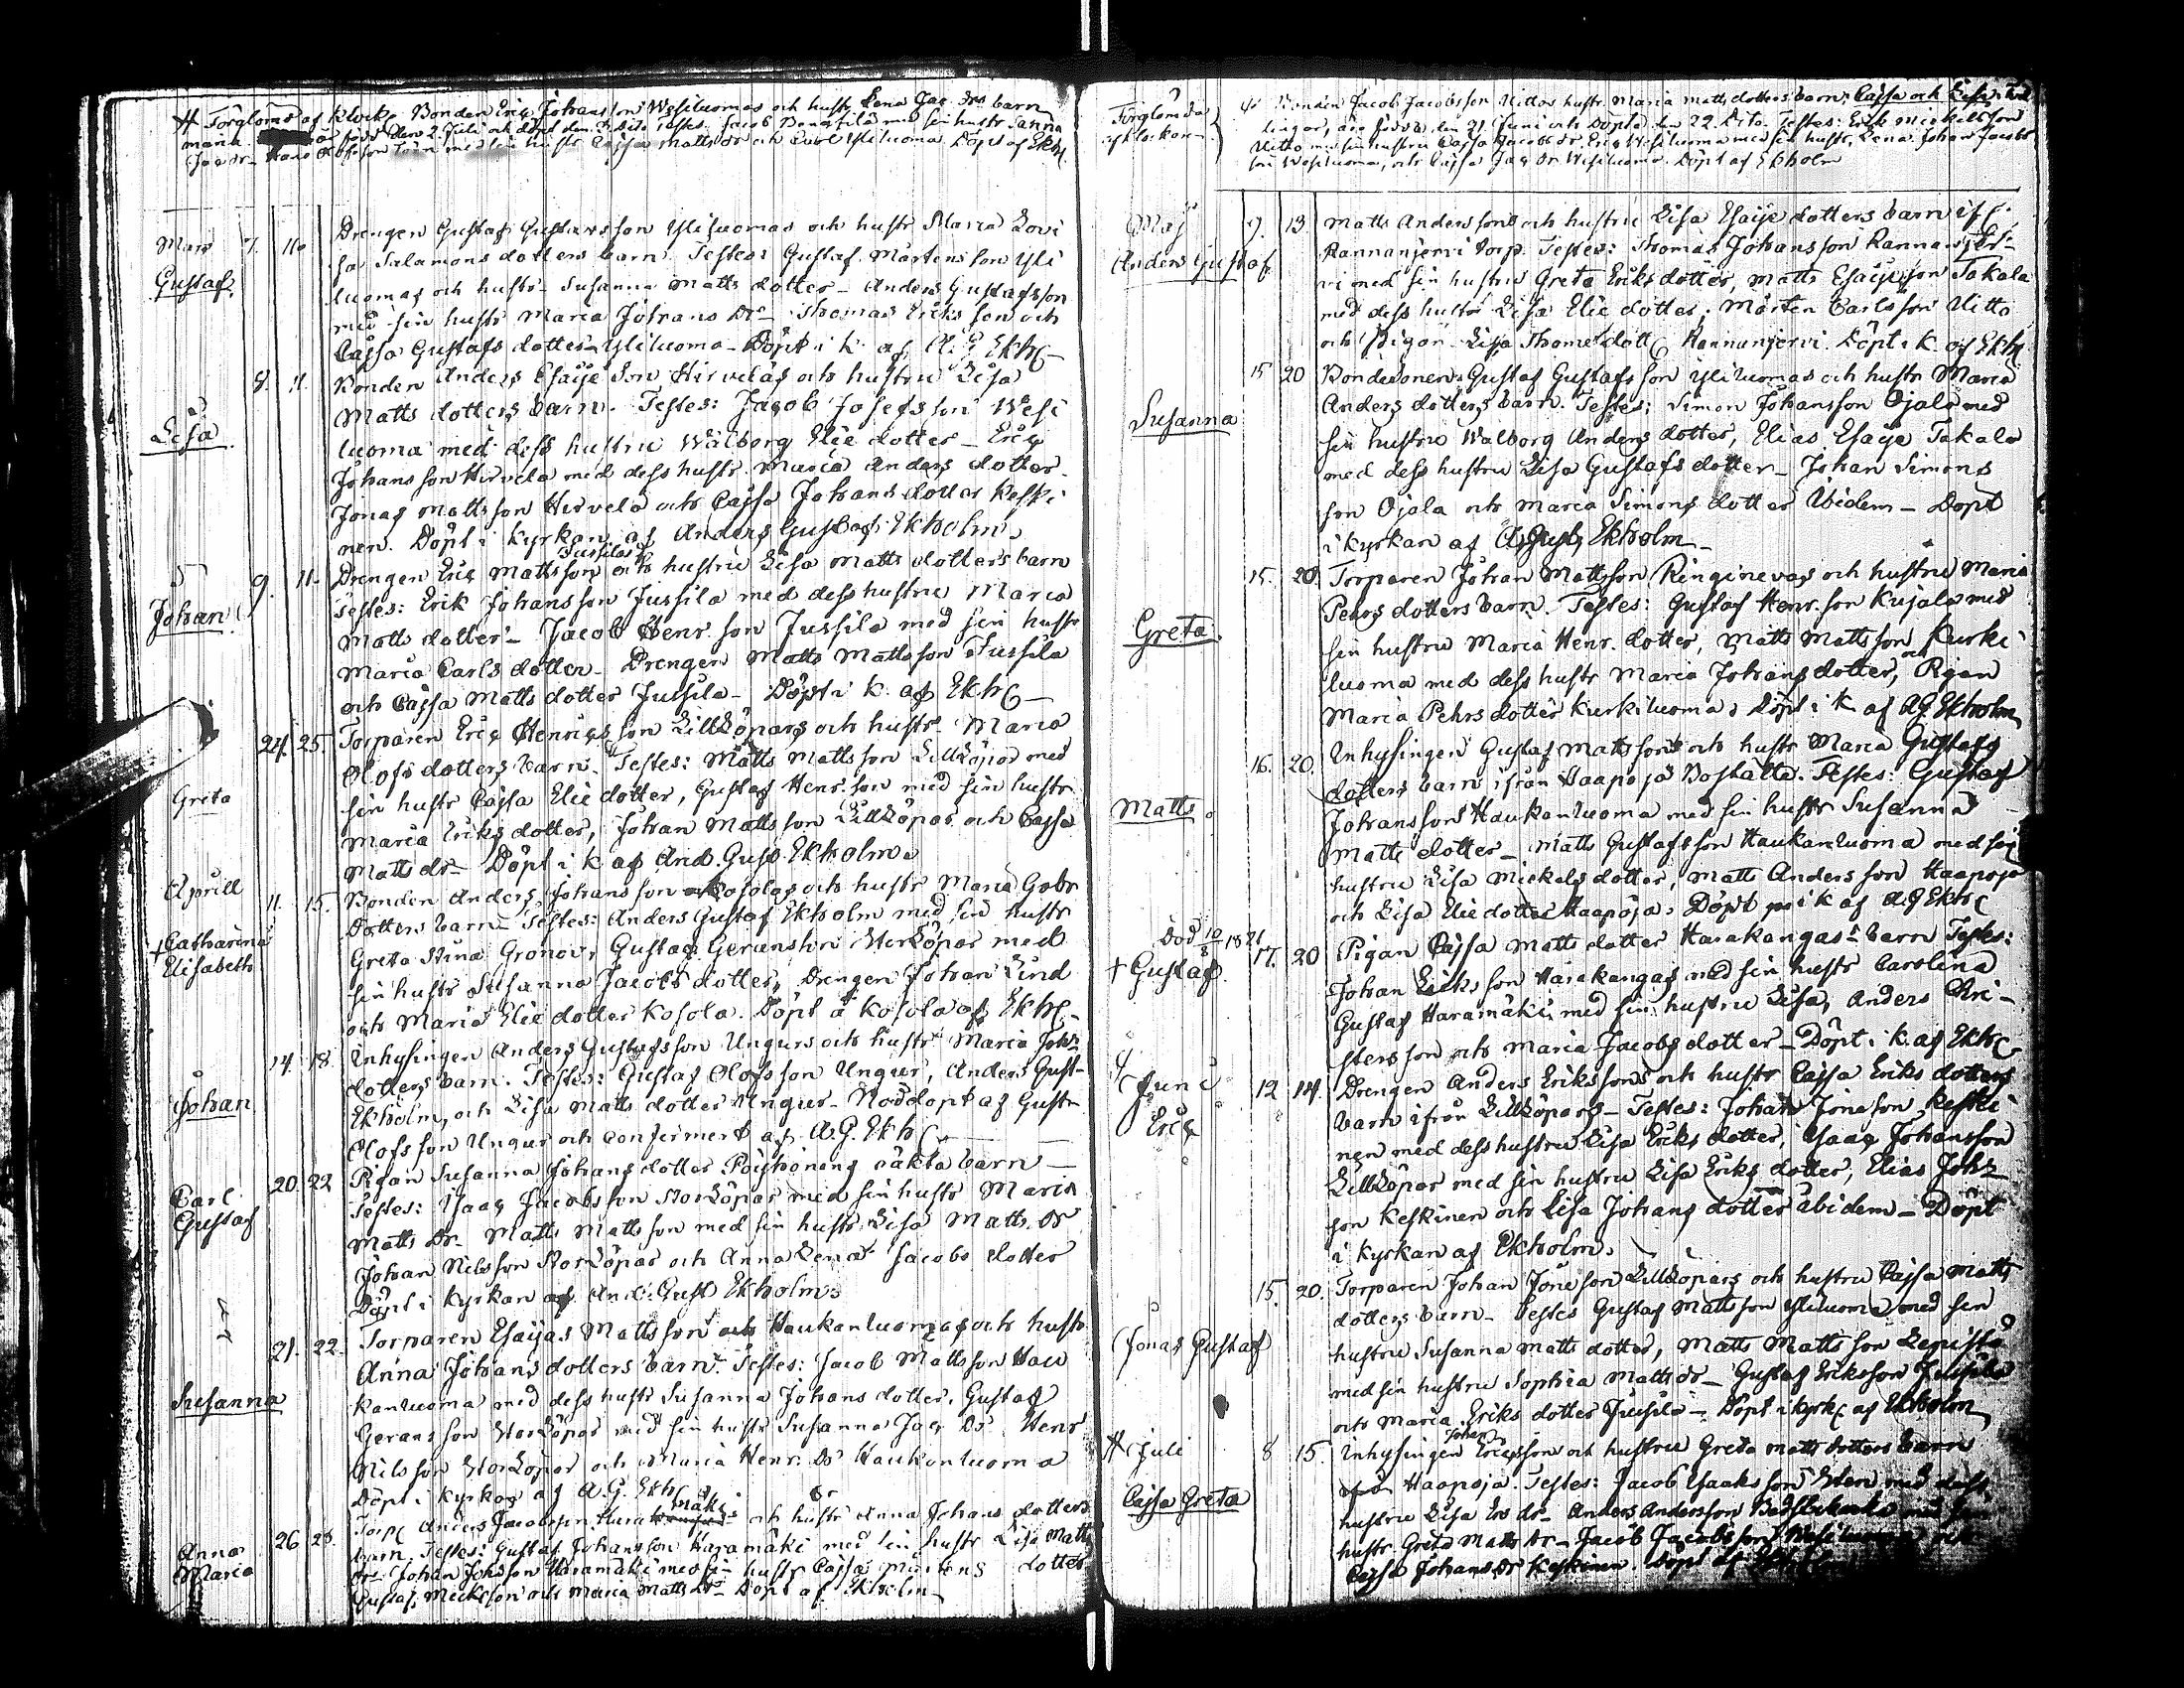 # Förglömd af klock. Bonden Eric Johansson Wesiluomas och hustr Lena Jac. drs barn
Maria född den 2 Juli och döpt den 3 dito Testes: Jacob med sin hustr Sanna
Jac dr Hans Olofsson med sin hustr Cajsa Matts dr och Yliluoma Döpt af Ekh
Mars 7. 10 Drengen Gustaf Gustavsson Yliluomas och hustr Maria Lovi
Gustaf. sa Salamons dotters barn. Testes: Gustaf Mårtensson Yli
luomas och hustr Susanna Matts dotter - Anders Gustafsson
med sin hustr Maria Johans Dr - Thomas Eriks son och
Cajsa Gustafs dotter Yliluoma - Döpt i k. af A. G Ekh
8. 11. Bonden Anders Esaije Son Hirvelas och hustru Lisa
Lisa Matts dotters barn. Testes: Jacob Josefsson Wesi
luoma med dess hustru Walborg Elie dotter - Eric
Johansson Hirvela med dess hustr. Maria Anders dotter
Jonas Mattsson Hirvela och Cajsa Johans dotter Keski
nen. Döpt i kyrkan af Anders Gustaf Ekholm.
Jussilas
9. 11. Drengen Eric Mattsson och hustru Lisa Matts dotters barn
Johan Testes: Erik Johansson Jussila med dess hustru Maria
Matts dotter - Jacob Henr. son Jussila med sin hustr
Maria Carls dotter - Drengen Matts Mattsson Jussila
och Cajsa Matts dotter Jussila - Döpt i k. af Ekh
24. 25. Torparen Eric Henricsson Lillköpars och hustr Maria
Olofs dotters barn. Testes: Matts Mattsson Lillköpar med
Greta sin hustr Cajsa Elie dotter, Gustaf Henr. son med sin hustr
Maria Eriks dotter, Johan Matts son Lillköpar och Cajsa
Matts dr - Döpt i k af And. Gust Ekholm.
April 11. 15. Bonden Anders Johansson Kosolas och hustr Maria Gabr
Dotters barn - Testes: Anders Gustaf Ekholm med sin hustr
+ Catharina Elisabeth Greta Stina Gronov, Gustaf Geransson Storköpar med
sin hustr Susanna Jacobs dotter, Drengen Johan Lind
och Maria Elie dotter Kosola. Döpt å Kosola af Ekh.
14. 18. Inhysingen Anders Gustafsson Ungurs och hustr Maria Joh:
Johan dotters barn. Testes: Gustaf Olofsson Ungur, Anders Gust
Ekholm, och Lisa Matts dotter Ungur - Nöddöpt af Gust
Olofsson Ungur och confirmert af A. G. Ekh
20. 22 Pigan Susanna Johans dotter oäkta barn -
Carl Gustaf Testes: Isaac Jacobsson Storköpar med sin hustr Maria
Matts Dr - Matts Mattsson med sin hustr Lisa Matts Dr
Johan Nilsson Storköpar och Anna Lena Jacobs dotter
Döpt i kyrkan af And. Gust Ekholm.
21. 22. Torparen Esaijas Mattsson Haukanluomas och hustr
Anna Johans dotters barn. Testes: Jacob Mattsson Hau
Susanna kanluoma med dess hustr Susanna Johans dotter, Gustaf
Geransson Storköpar med sin hustr Susanna Jac Dr Henr
Nilsson Storköpar och Maria Henr: Dr Haukanluoma
Döpt i kyrkan af A. G. Ekh
mäki
26 28 Torp Anders Jacobsson Hara och hustr Anna Johans dotters
Anna Maria barn. Testes: Gustaf Johansson Haramäki med sin hustr Lisa Matts
dr Johan Johsson Haramäki med sin hustr Cajsa Mårtens dotter
Gustaf Mickelsson och Maria Matts Dr - Döpt af Ekholm -
Förglömda af klockon
Bonden Jacob Jacobsson Uittos hustr Maria Matts dotters barn, Cajsa och Lisa, twil
lingar, äro födda den 21 Juni och döpta den 22. Dito. Testes: Erik Mickelsson
Uitto med sin hustru Cajsa Jacobs dr. Eric Wesiluoma med sin hustr. Lena. Johan Jacobs
son Wesiluoma, och Cajsa Jac dr Wesiluoma. Döpt af Ekholm
Maj 9. 13. Matts Anderssons och hustru Lisa Esaije dotters barn if f.
Anders Gustaf Rannanjervi torp. Testes: Thomas Johansson Rannanjer-
vi med sin hustru Greta Eriks dotter, Matts Esaije son Takala
med dess hustr Lisa Elie dotter, Mårten Carlsson Uitto
och Pigan Lisa Thome dott Rannanjervi. Döpt i K. af Ekh
15 20 Bondesonen Gustaf Gustafsson Yliluomas och hustr Maria
Susanna Anders dotters barn. Testes: Simon Johansson Ojala med
sin hustru Walborg Anders dotter, Elias Esaije Takala
med dess hustru Lisa Gustafs dotter - Johan Simons
son Ojala och Maria Simons dotter ibidem - Döpt
i kyrkan af A. Gust. Ekholm -
15. 20. Torparen Johan Mattsson Ringinevas och hustru Maria
Greta. Pehrs dotters barn. Testes: Gustaf Henr. son Kujala med
sin hustru Maria Henr. dotter, Matts Mattsson Kurki
luoma med dess hustr Maria Johans dotter, och Pigan
Maria Pehrs dotter Kurkiluoma, Döpt i K. af A G Ekholm
16. 20. Inhysingen Gustaf Mattssons och hustr Maria Gustafs
dotters barn ifrån Haapoja Boställe. Testes: Gustaf
Matts. Johansson Haukanluoma med sin hustr Susanna
Matts dotter - Matts Gustafsson Haukanluoma med sin
hustru Lisa Mickels dotter, Matts Anders son Haapoja
och Lisa Elie dotter Haapoja, Döpt i k af A G Ekh
Död 10/8 1821
+ Gustaf. 17. 20 Pigan Cajsa Matts dotter Harakangas's barn Testes:
Johan Erikssson Harakangas med sin hustr Carolina
Gustaf Haramäki med sin hustru Lisa, Anders Chri-
sters son och Maria Jacobs dotter - Döpt i k. af Ekh
Juni 12 14. Drengen Anders Erikssons och hustr Cajsa Eriks dotters
Eric barn ifrån Lillköpars - Testes: Johan Jöneson Keski
nen med dess hustru Lisa Eriks dotter, Isaac Johansson
Lillköpar med sin hustru Lisa Eriks dotter, Elias Johs
son Keskinen och Lisa Johans dotter ibidem - Döpt
i kyrkan af Ekholm.
15. 20. Torparen Johan Jöneson Lillköpars och hustru Cajsa Matts
dotters barn - Testes Gustaf Mattsson Yliluoma med sin
Jonas Gustaf hustru Susanna Matts dotter, Matts Matts son Lepistö
med sin hustru Sophia Matts dr - Gustaf Eriksson Jussila
och Maria Eriks dotter Jussila - Döpt i kyrk af Ekholm
Johan
# Juli 8 15. Inhysingen Ericsson och hustru Greta Matts dotters barn
Cajsa Greta Haapoja. Testes: Jacob Isaaksson med dess
hustru Lisa dr - Anders Andersson med sin
hustr Greta Matts dr - Jacob Jacobsson
Cajsa Johans Dr Keskinen. Döpt af